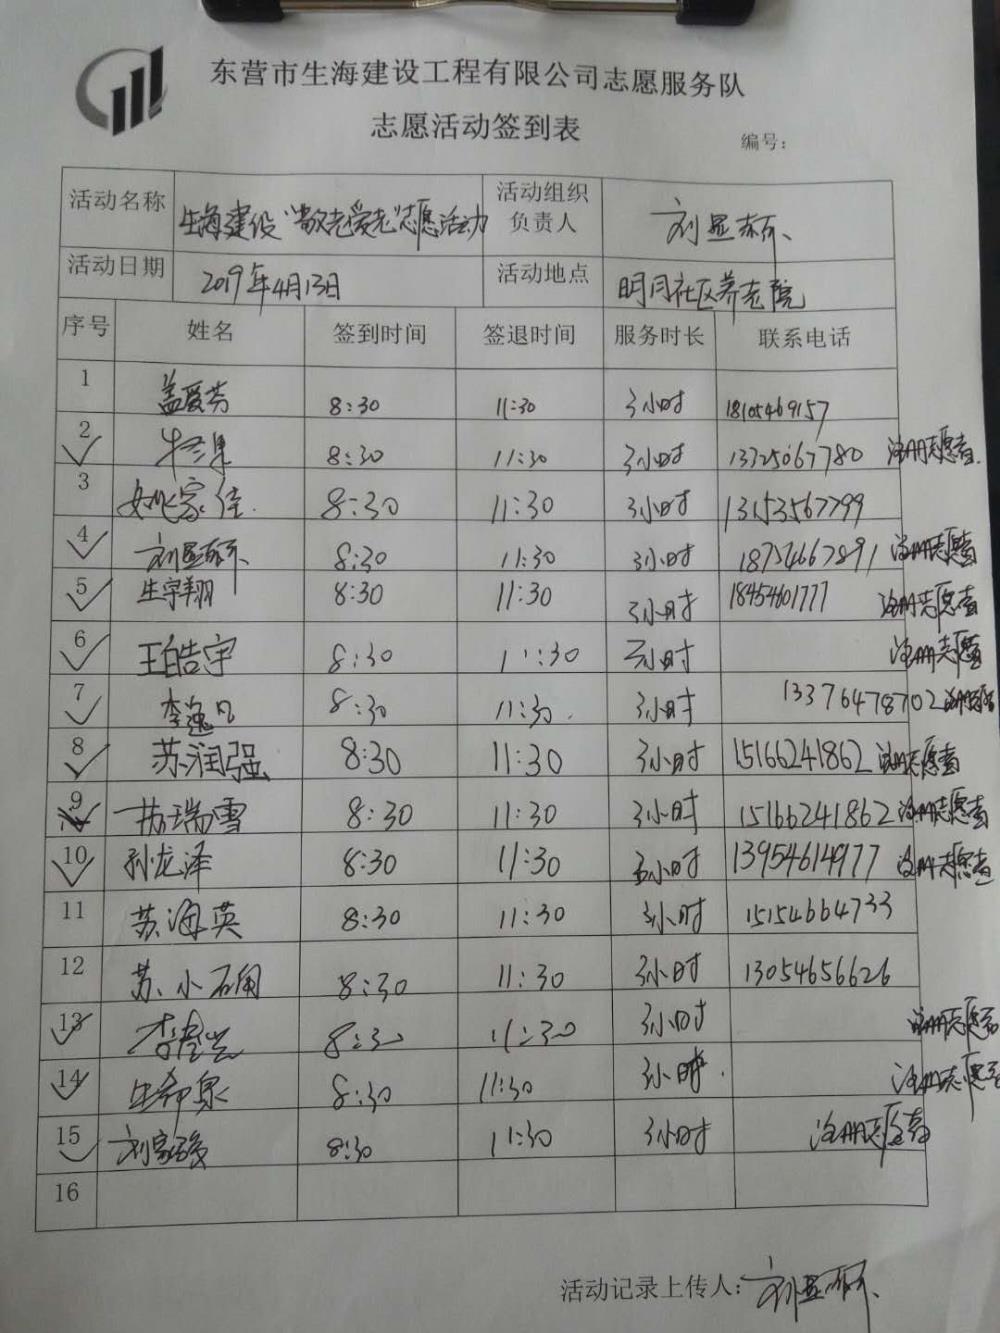 东营市生海建设工程有限公司志愿服务队
志愿活动签到表
编号：
活动名称 生海建设“敬老爱老”志愿活动 活动组织负责人 刘显
活动日期 2019年4月13日 活动地点 明月社区养老院
序号 姓名 签到时间 签退时间 服务时长 联系电话
1 盖爱芳 8:30 11:30 3小时 18105469157
2 牛兰果 8:30 11:30 3小时 13325067780 注册志愿者.
3 姚家佳. 8:30 11:30 3小时 13153567799
4 刘显 8:30 11:30 3小时 18754667891 注册志愿者
5 生宇翔 8:30 11:30 3小时 18454601777 注册志愿者
6 王皓宇 8:30 11:30 三小时 注册志愿者
7 李逸凡 8:30 11:30. 3小时 13376478702 注册志愿者
8 苏润强 8:30 11:30 3小时 15166241862 注册志愿者
9 苏瑞雪 8:30 11:30 3小时 15166241862 注册志愿者
10 孙龙泽 8:30 11:30 3小时 13954614977 注册志愿者
11 苏海英 8:30 11:30 3小时 15154664733
12 苏小石角 8:30 11:30 3小时 13054656626
13 李 8:30 11:30 3小时 注册志愿者
14 生希泉 8:30 11:30 3小时. 注册志愿者
15 刘家 8:30 11:30 3小时 注册志愿者
16
活动记录上传人：刘显